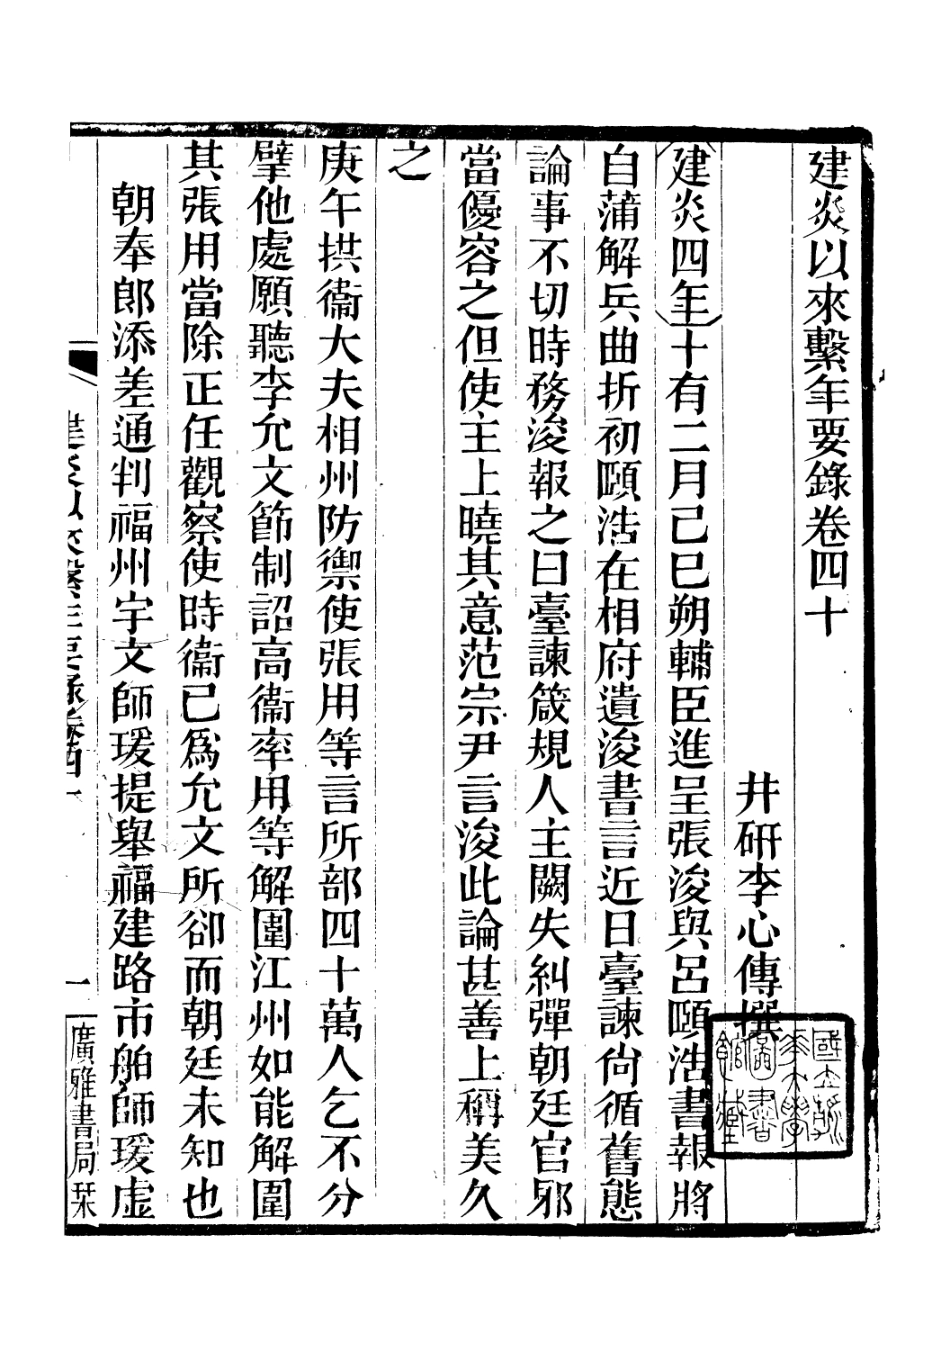 建炎以來繫年要錄卷四十
井研李心傳撰
建炎四年十有二月己巳朔輔臣進呈張浚與呂頤浩書報將
自蒲解兵曲折初頤浩在相府遺浚書言近日臺諫尚循舊態
論事不切時務浚報之曰臺諫箴規人主闕失糾彈朝廷官邪
當優容之但使主上曉其意范宗尹言浚此論甚善上稱美久
之
庚午拱衞大夫相州防禦使張用等言所部四十萬人乞不分
擘他處願聽李允文節制詔高衞率用等解圍江州如能解圍
其張用當除正任觀察使時衞已爲允文所卻而朝廷未知也
朝奉郎添差通判福州宇文師瑗提舉福建路市舶師瑗虛
建炎以來繫年要錄卷四十
一
廣雅書局栞
國立清華大學圖書館藏